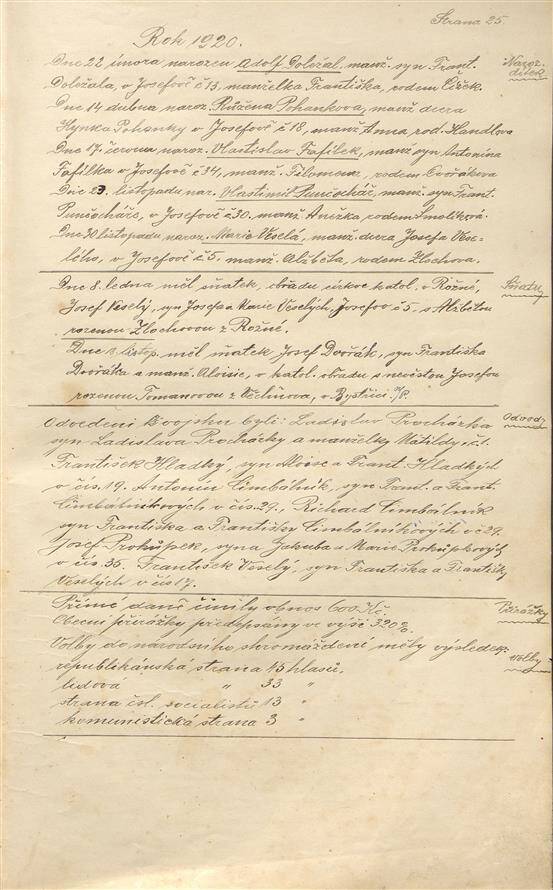 Strana 25
Rok 1920.
Dne 22 února narozen Adolf Doležal, manž. syn Frant.
Naroz. dítek
Doležala, v Josefově č 13, manželka Františka, rodem Čížek.
Dne 14 dubna naroz. Růžena Pohankova, manž dcera
Hynka Pohanky v Josefově č 18, manž Anna rod. Handlova
Dne 17. června naroz. Vlastislav Fafilek, manž syn Antonína
Fafilka v Josefově č 34, manž. Filomena, rodem Dvořákova
Dne 23. listopadu nar. Vlastimil Punčochář, manž. syn Frant.
Punčocháře, v Josefově č. 30. manž. Anežka, rodem Smolíková.
Dne 30 listopadu naroz. Marie Veselá, manž. dcera Josefa Vese-
lého, v Josefově č 5. manž. Alžběta, rodem Zlochova.
Dne 8. ledna měl sňatek, obřadu církve katol. v Rožné,
Sňatky
Josef Veselý, syn Josefa a Marie Veselých, Josefov č 5, s Alžbětou
rozenou Zlochovou z Rožné.
Dne listop. měl sňatek Josef Dvořák, syn Františka
Dvořáka a manž. Aloisie, v katol. obřadu s nevěstou Josefou
rozenou Tomanovou z Věchnova, v Bystřici n/P.
Odvedeni k vojsku byli: Ladislav Procházka
Odvody
syn Ladislava Procházky a manželky Matildy, č. 1.
František Hladký, syn Aloise a Frant. Hladkých
v čís. 19. Antonín Cimbálník, syn Frant. a Frant.
Cimbálníkových v čís. 29., Richard Cimbálník
syn Františka a Františky Cimbálníkových v č 29.
Josef Prokůpek, syna Jakuba a Marie Prokůpkových
v čís. 35. František Veselý, syn Františka a Františky
Veselých v čís 17.
Přímé daně činily obnos 600 Kč.
Přirážky
Obecní přirážky předepsány ve výši 320%.
Volby do národního shromáždění měly výsledek:
Volby
republikánská strana 45 hlasů,
lidová " 33 "
strana čsl. socialistů 13 "
komunistická strana 3 "